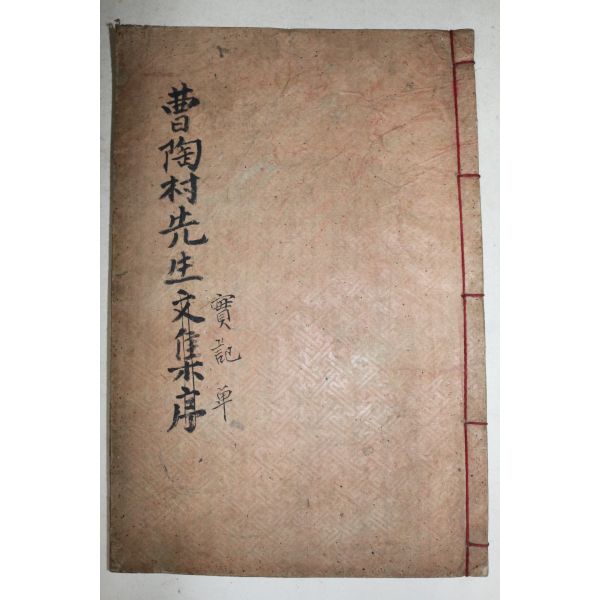 曺陶村先生文集序
實記單